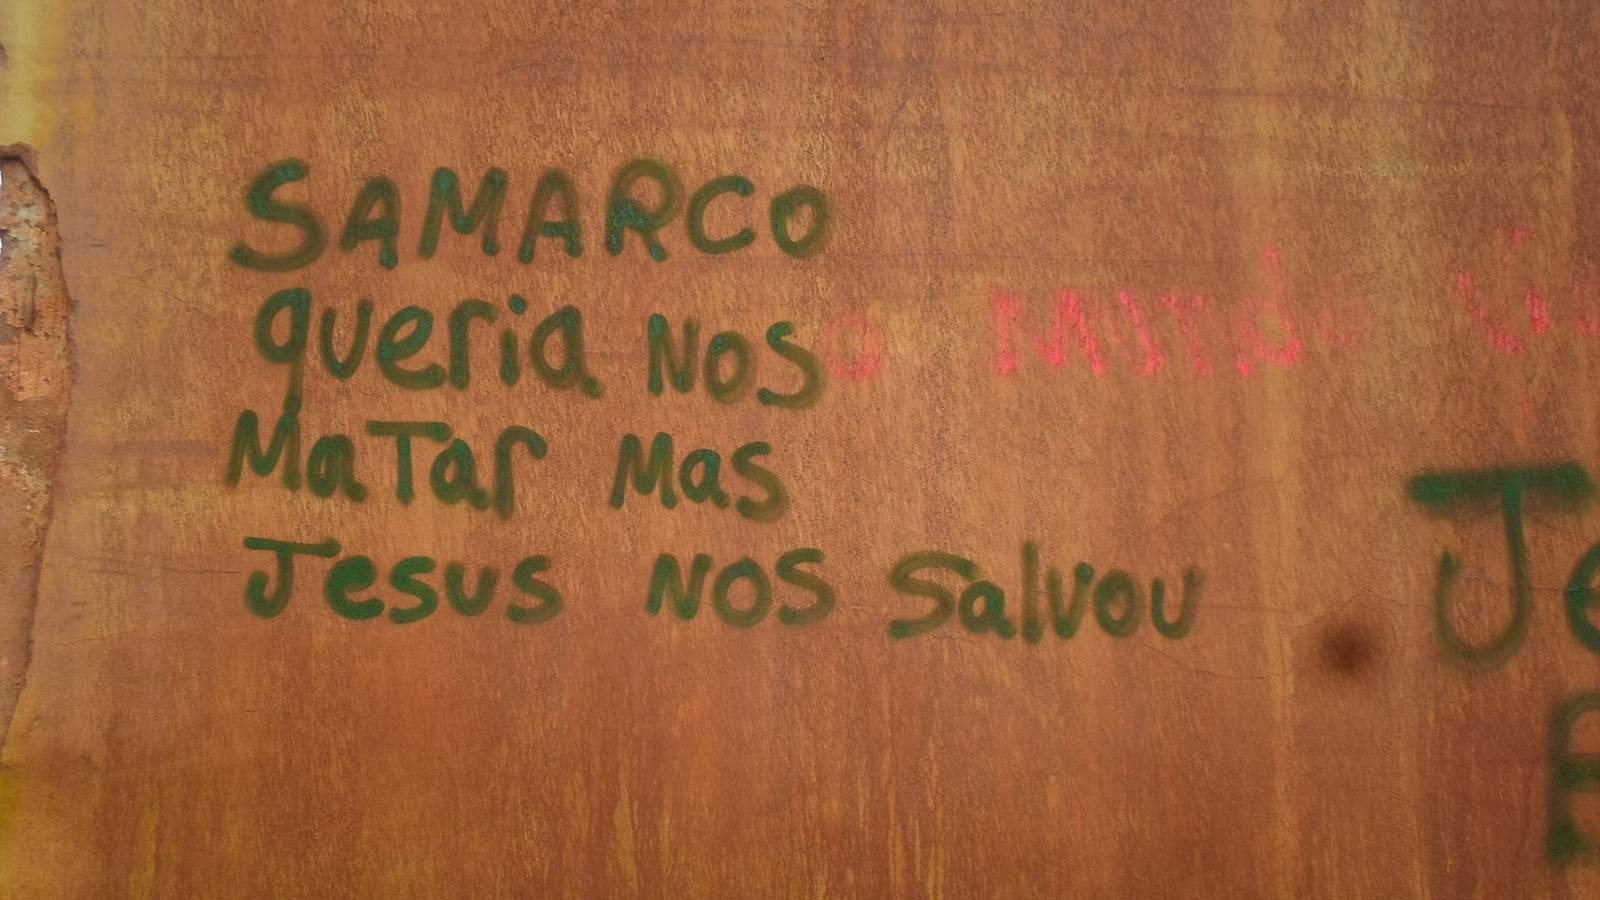 SAMARCO
queria NOS
MaTar Mas
Jesus NOS Salvou